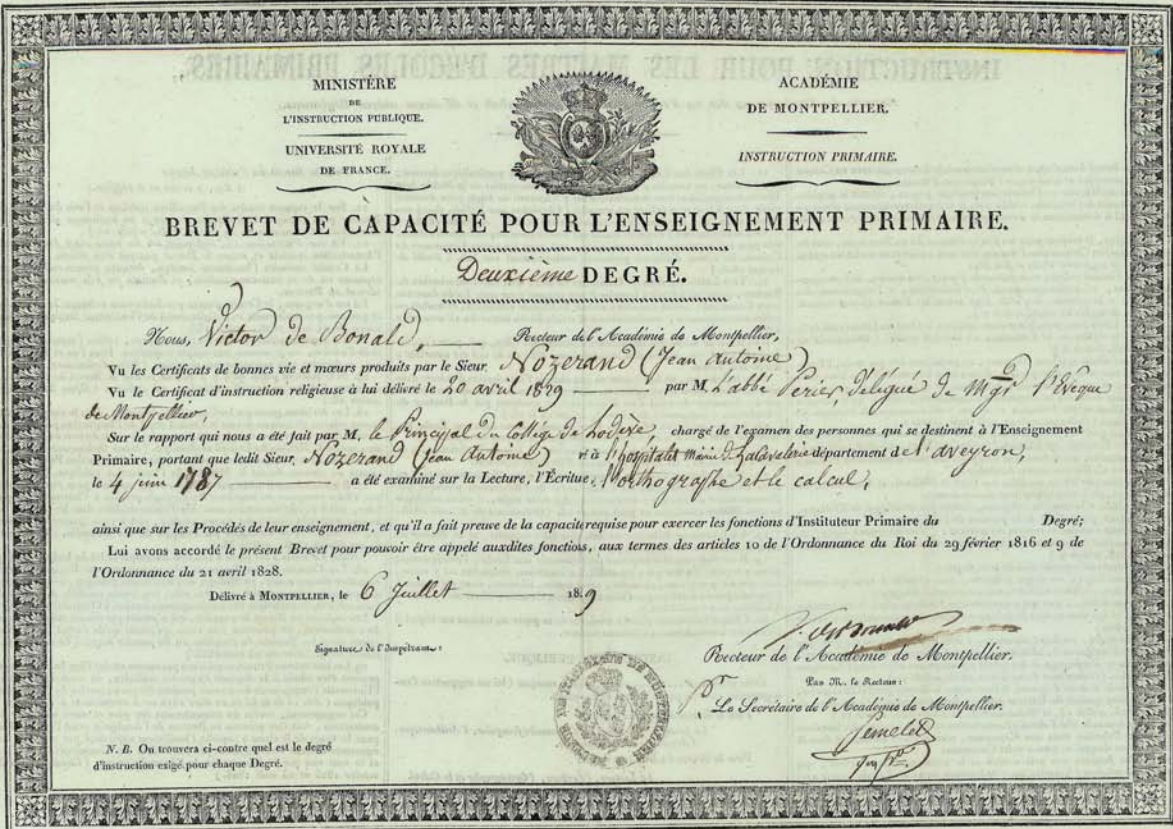 MINISTÈRE
DE
L'INSTRUCTION PUBLIQUE.
UNIVERSITÉ ROYALE
DE FRANCE.
ACADÉMIE
DE MONTPELLIER.
INSTRUCTION PRIMAIRE.
BREVET DE CAPACITÉ POUR L'ENSEIGNEMENT PRIMAIRE.
Deuxième DEGRÉ.
Nous, Victor de Bonald, Recteur de l'Académie de Montpellier,
Vu les Certificats de bonnes vie et mœurs produits par le Sieur Nozerand (Jean Antoine)
Vu le Certificat d'instruction religieuse à lui délivré le 20 avril 1829 par M. L'abbé Perier, délégué de Mgr l'Evêque
de Montpellier,
Sur le rapport qui nous a été fait par M. le Principal du Collège de Lodève, chargé de l'examen des personnes qui se destinent à l'Enseignement
Primaire, portant que ledit Sieur Nozerand (Jean Antoine) né à l'hospitalet département de l'aveyron,
le 4 juin 1787 a été examiné sur la Lecture, l'Écriture, l'orthographe et le calcul,
ainsi que sur les Procédés de leur enseignement, et qu'il a fait preuve de la capacité requise pour exercer les fonctions d'Instituteur Primaire du Degré;
Lui avons accordé le présent Brevet pour pouvoir être appelé auxdites fonctions, aux termes des articles 10 de l'Ordonnance du Roi du 29 février 1816 et 9 de
l'Ordonnance du 21 avril 1828.
Délivré à MONTPELLIER, le 6 Juillet 1829
Signature de l'Impétrant:
Recteur de l'Académie de Montpellier.
Par M. le Recteur:
Pr Le Secrétaire de l'Académie de Montpellier.
N. B. On trouvera ci-contre quel est le degré
d'instruction exigé pour chaque Degré.